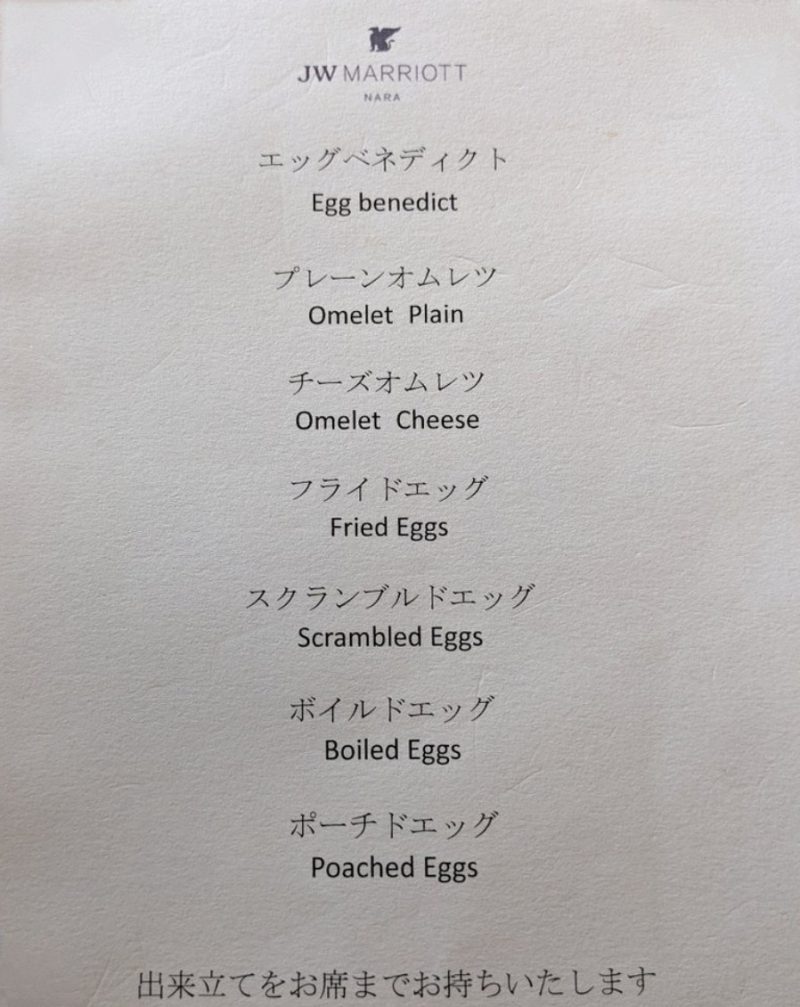 JW MARRIOTT
NARA
エッグベネディクト
Egg benedict
プレーンオムレツ
Omelet Plain
チーズオムレツ
Omelet Cheese
フライドエッグ
Fried Eggs
スクランブルドエッグ
Scrambled Eggs
ボイルドエッグ
Boiled Eggs
ポーチドエッグ
Poached Eggs
出来立てをお席までお持ちいたします